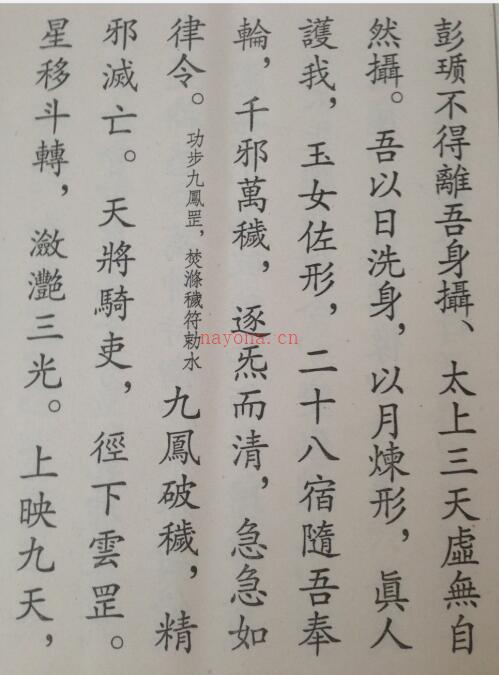 彭瑣不得離吾身攝、太上三天虛無自
然攝。吾以日洗身，以月煉形，眞人
護我，玉女佐形，二十八宿隨吾奉
輪，千邪萬穢，逐炁而清，急急如
律令。功步九鳳罡，焚滌穢符勅水九鳳破穢，精
邪滅亡。天將騎吏，徑下雲罡。
星移斗轉，瀲灩三光。上映九天，
nayona.cn